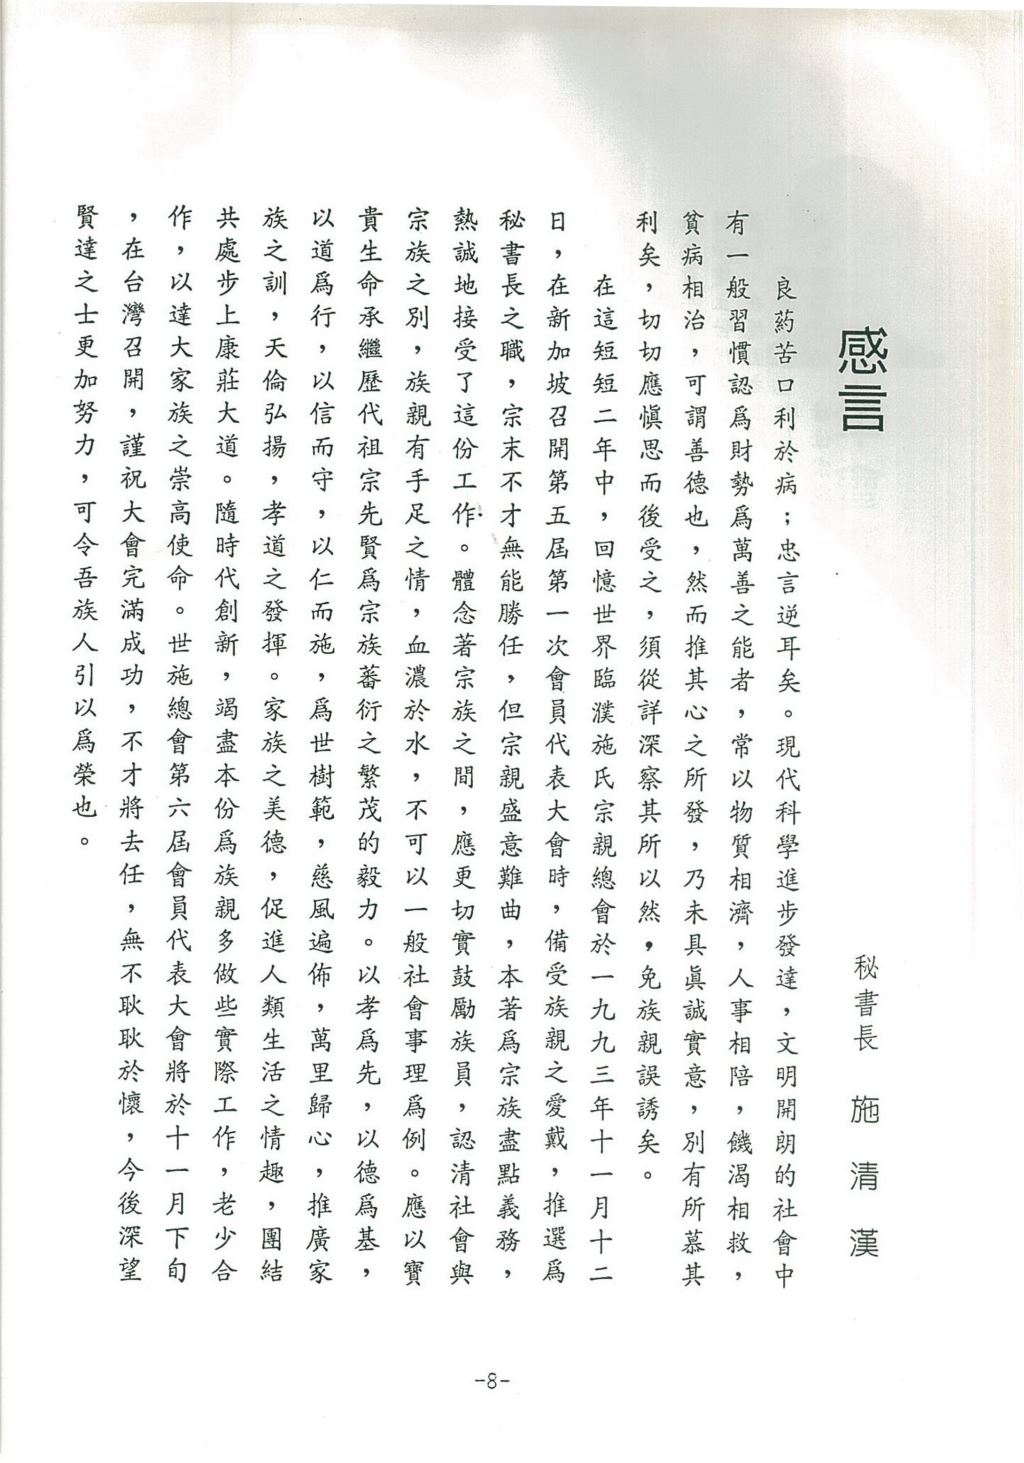 感言
秘書長 施清漢
良葯苦口利於病；忠言逆耳矣。現代科學進步發達，文明開朗的社會中
有一般習慣認爲財勢爲萬善之能者，常以物質相濟，人事相陪，饑渴相救，
貧病相治，可謂善德也，然而推其心之所發，乃未具眞誠實意，別有所慕其
利矣，切切應愼思而後受之，須從詳深察其所以然，免族親誤誘矣。
在這短短二年中，回憶世界臨濮施氏宗親總會於一九九三年十一月十二
日，在新加坡召開第五屆第一次會員代表大會時，備受族親之愛戴，推選爲
秘書長之職，宗末不才無能勝任，但宗親盛意難曲，本著爲宗族盡點義務，
熱誠地接受了這份工作。體念著宗族之間，應更切實鼓勵族員，認清社會與
宗族之別，族親有手足之情，血濃於水，不可以一般社會事理爲例。應以寶
貴生命承繼歷代祖宗先賢爲宗族蕃衍之繁茂的毅力。以孝爲先，以德爲基，
以道爲行，以信而守，以仁而施，爲世樹範，慈風遍佈，萬里歸心，推廣家
族之訓，天倫弘揚，孝道之發揮。家族之美德，促進人類生活之情趣，團結
共處步上康莊大道。隨時代創新，竭盡本份爲族親多做些實際工作，老少合
作，以達大家族之崇高使命。世施總會第六屆會員代表大會將於十一月下旬
，在台灣召開，謹祝大會完滿成功，不才將去任，無不耿耿於懷，今後深望
賢達之士更加努力，可令吾族人引以爲榮也。
-8-